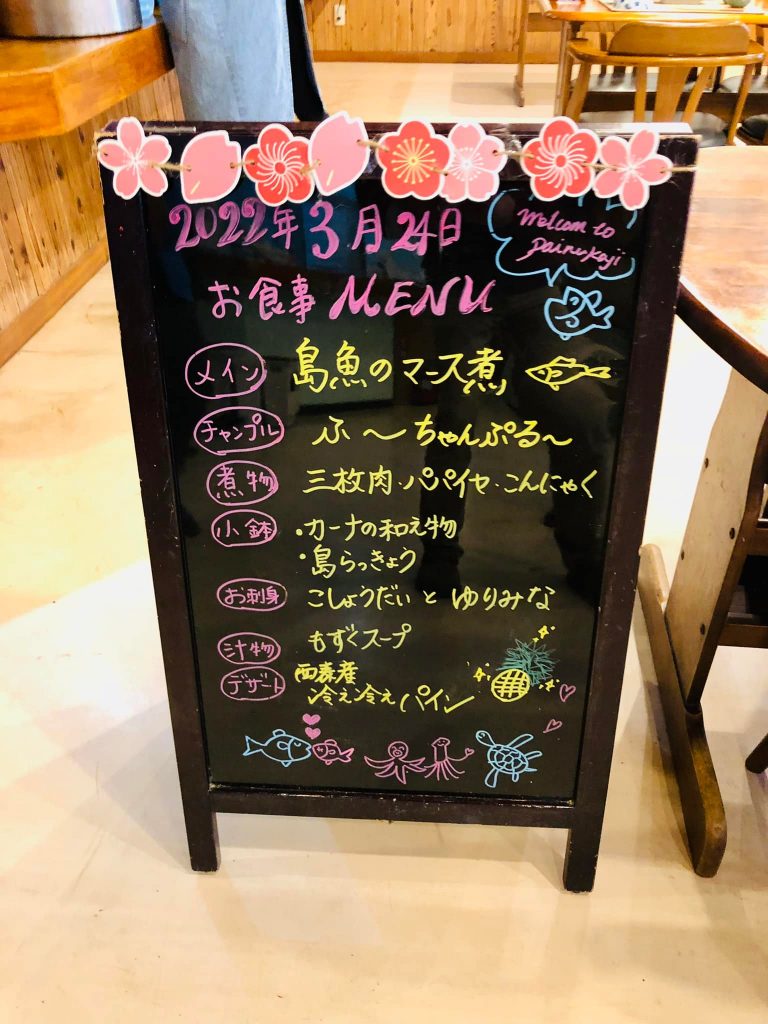 2022年3月24日
Welcom to
Painukaji
お食事 MENU
メイン 島魚のマース煮
チャンプル ふ〜ちゃんぷる〜
煮物 三枚肉・パパイヤ・こんにゃく
小鉢 ・カーナの和え物
・島らっきょう
お刺身 こしょうだい と ゆりみな
汁物 もずくスープ
デザート 西表産
冷え冷えパイン